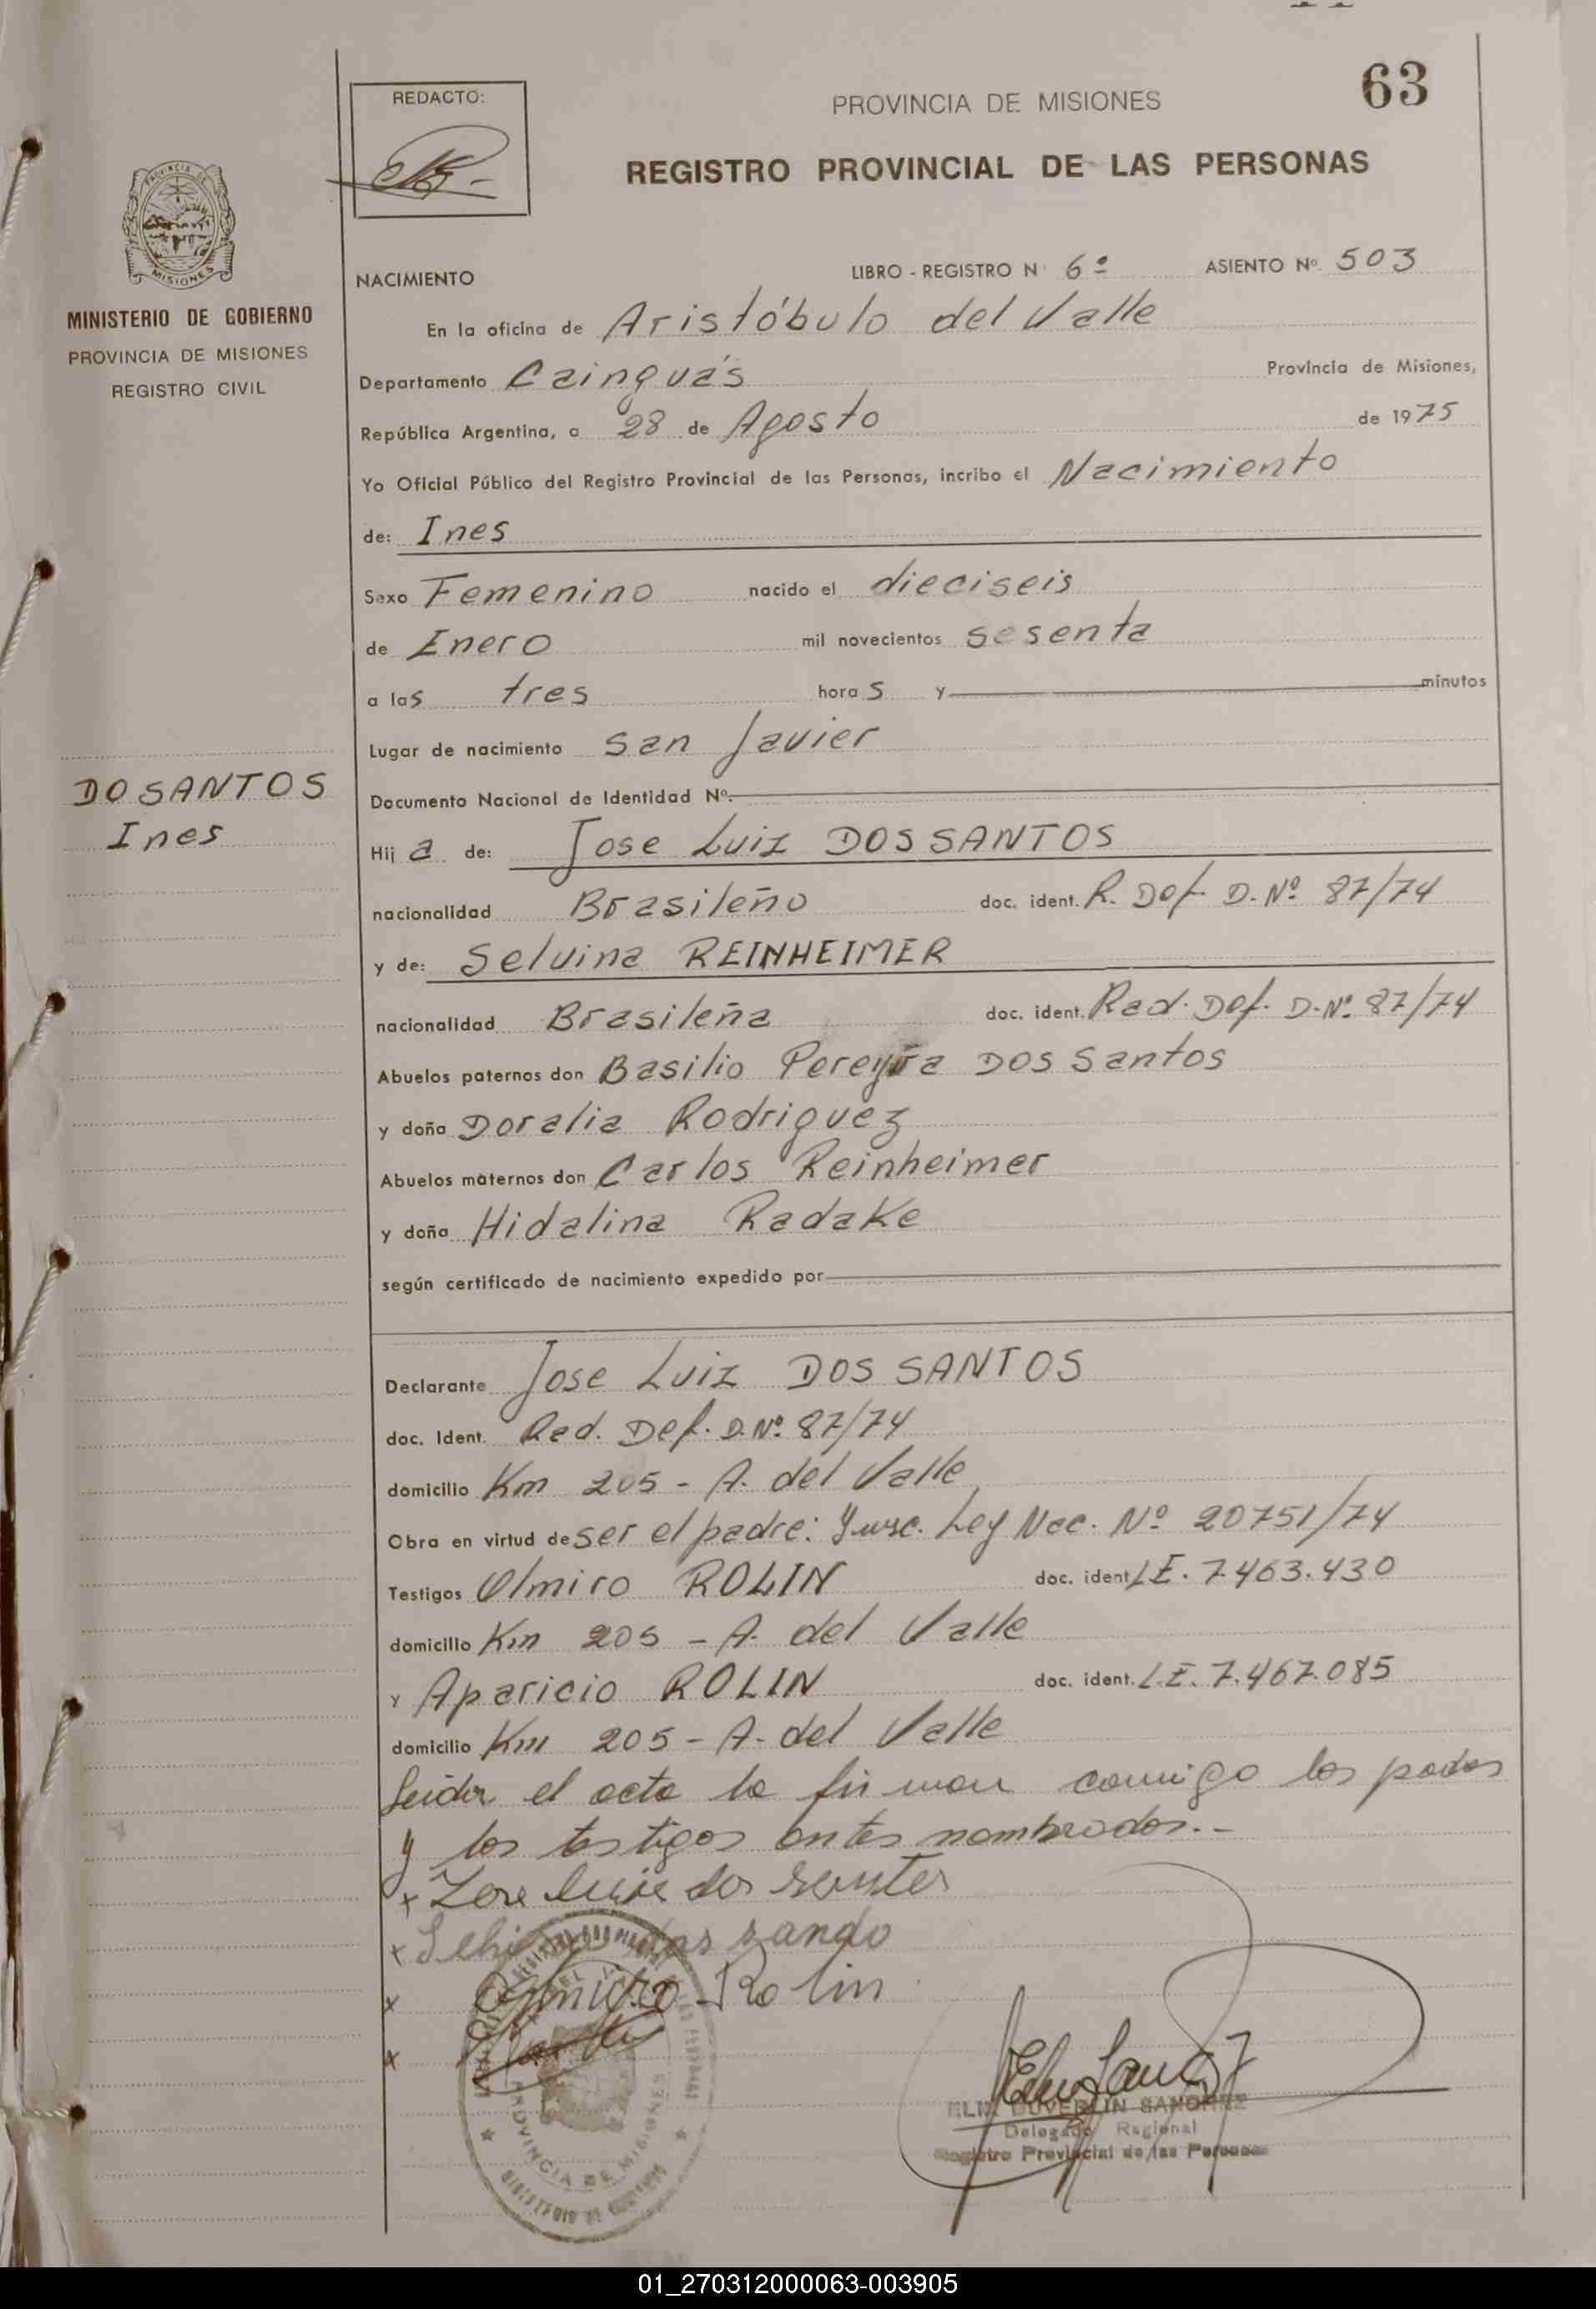 63
REDACTO:
PROVINCIA DE MISIONES
REGISTRO PROVINCIAL DE LAS PERSONAS
MISIONES
MINISTERIO DE GOBIERNO
PROVINCIA DE MISIONES
REGISTRO CIVIL
NACIMIENTO LIBRO - REGISTRO Nº 6º ASIENTO Nº 503
En la oficina de Aristóbulo del Valle
Departamento Cainguás Provincia de Misiones,
República Argentina, a 28 de Agosto de 1975
Yo Oficial Público del Registro Provincial de las Personas, incribo el Nacimiento
de: Ines
Sexo Femenino nacido el dieciseis
de Enero mil novecientos sesenta
a las tres horas y minutos
Lugar de nacimiento San Javier
DO SANTOS
Ines
Documento Nacional de Identidad Nº.
Hija de: Jose Luiz DOS SANTOS
nacionalidad Brasileño doc. ident. R. Def. D. Nº 87/74
y de: Selvina REINHEIMER
nacionalidad Brasileña doc. ident. Rad. Def. D. Nº 87/74
Abuelos paternos don Basilio Pereyra Dos Santos
y doña Doralia Rodriguez
Abuelos maternos don Carlos Reinheimer
y doña Hidalina Radake
según certificado de nacimiento expedido por
Declarante Jose Luiz DOS SANTOS
doc. Ident. Rad. Def. D. Nº 87/74
domicilio Km 205 - A. del Valle
Obra en virtud de ser el padre: Insc. Ley Nac. Nº 20751/74
Testigos Olmiro ROLIN doc. ident. L.E. 7.463.430
domicilio Km 205 - A. del Valle
y Aparicio ROLIN doc. ident. L.E. 7.467.085
domicilio Km 205 - A. del Valle
Leida el acta la firman conmigo los padres
y los testigos antes nombrados.-
x Jose luiz dos santos
x dos sando
x Olmiro Rolin
x
PROVINCIA DE MISIONES
MINISTERIO DE GOBIERNO
SANCHEZ
Delegado Regional
Registro Provincial de las Personas
01_270312000063-003905